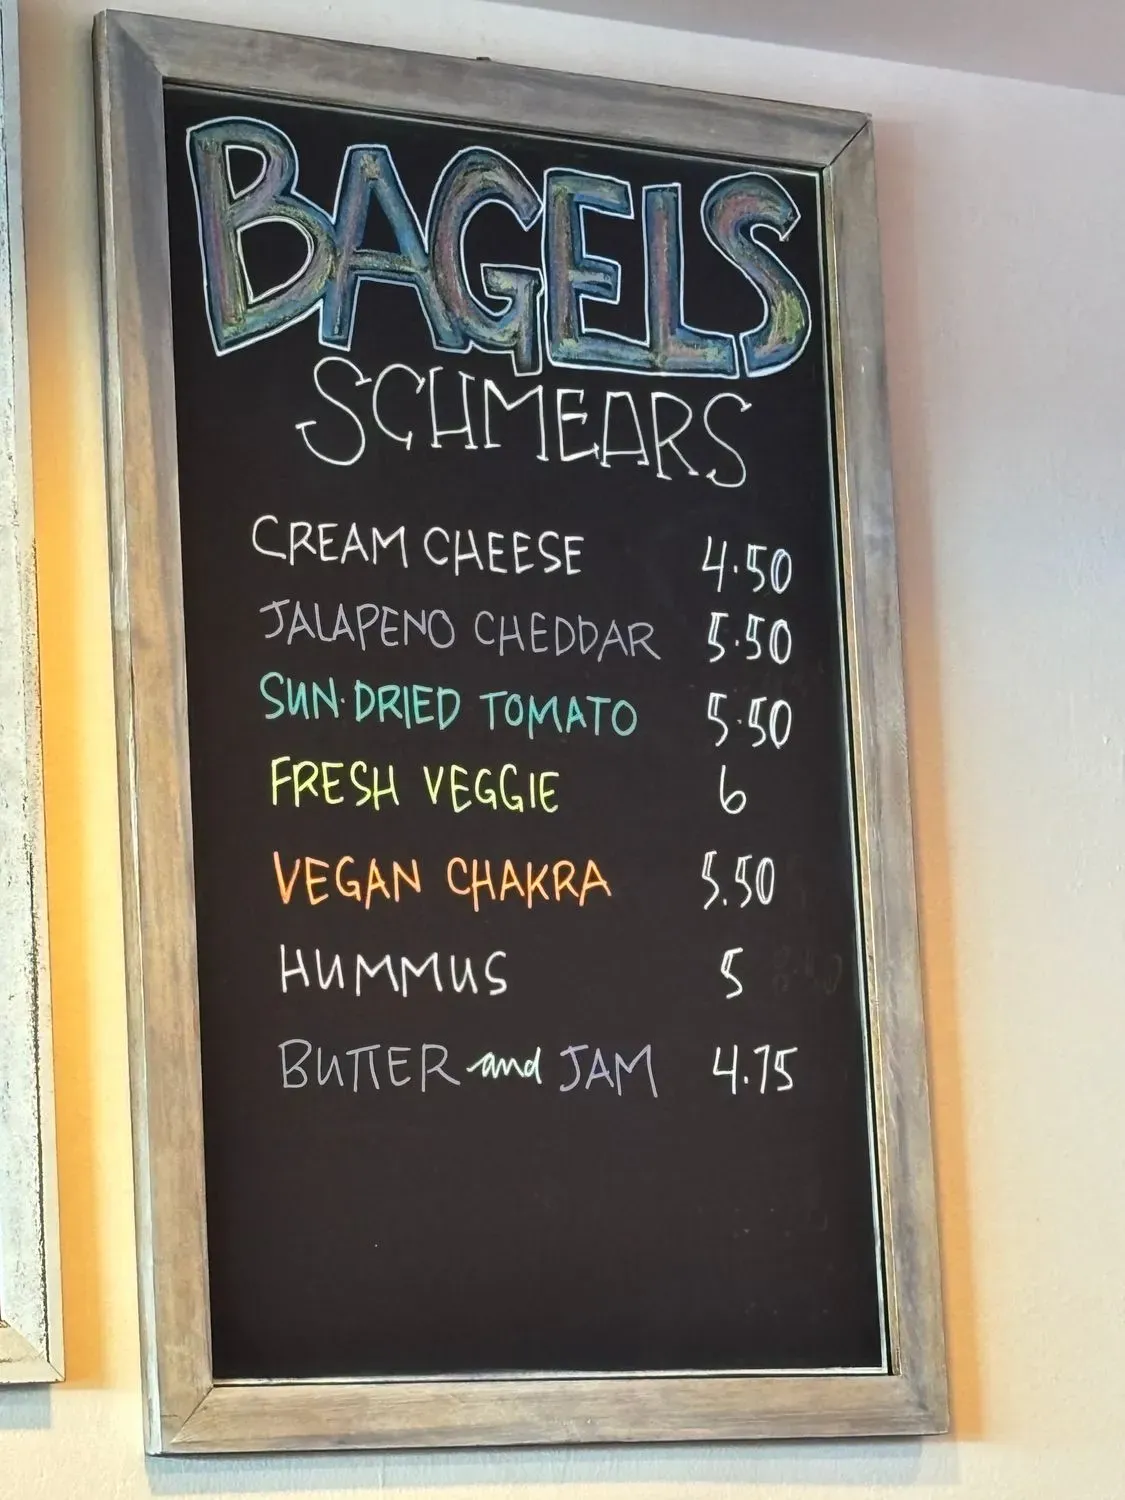 BAGELS
SCHMEARS
CREAM CHEESE 4.50
JALAPENO CHEDDAR 5.50
SUN-DRIED TOMATO 5.50
FRESH VEGGIE 6
VEGAN CHAKRA 5.50
HUMMUS 5
BUTTER and JAM 4.75